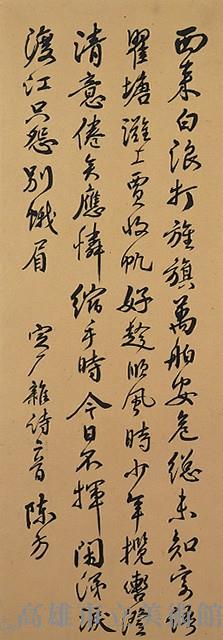 西来白浪打旌旗萬舶安危總未知寄語
瞿塘灘上賈收帆好趁順風時少年攬轡澄
清意倦矣應憐縮手時今日不揮閒涕淚
渡江只怨別蛾眉　定厂雜詩二首　陳方
高雄市立美術館